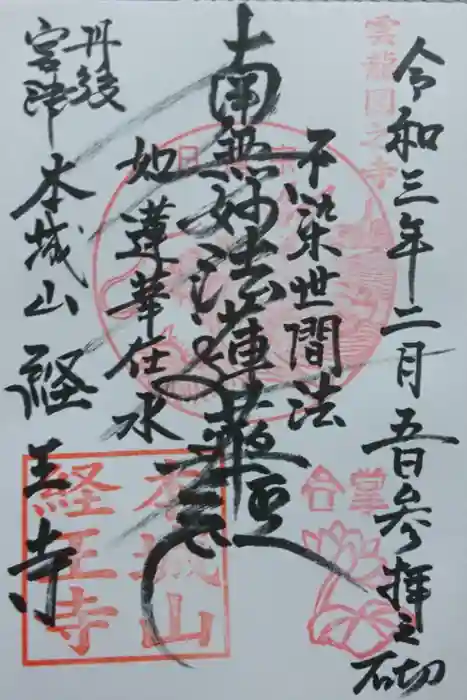 雲龍圖之寺
令和三年二月五日参拝之砌
不染世間法
南無妙法蓮華経
如蓮華在水
丹後
宮津
本城山
経王寺
合掌
本城山
経王寺